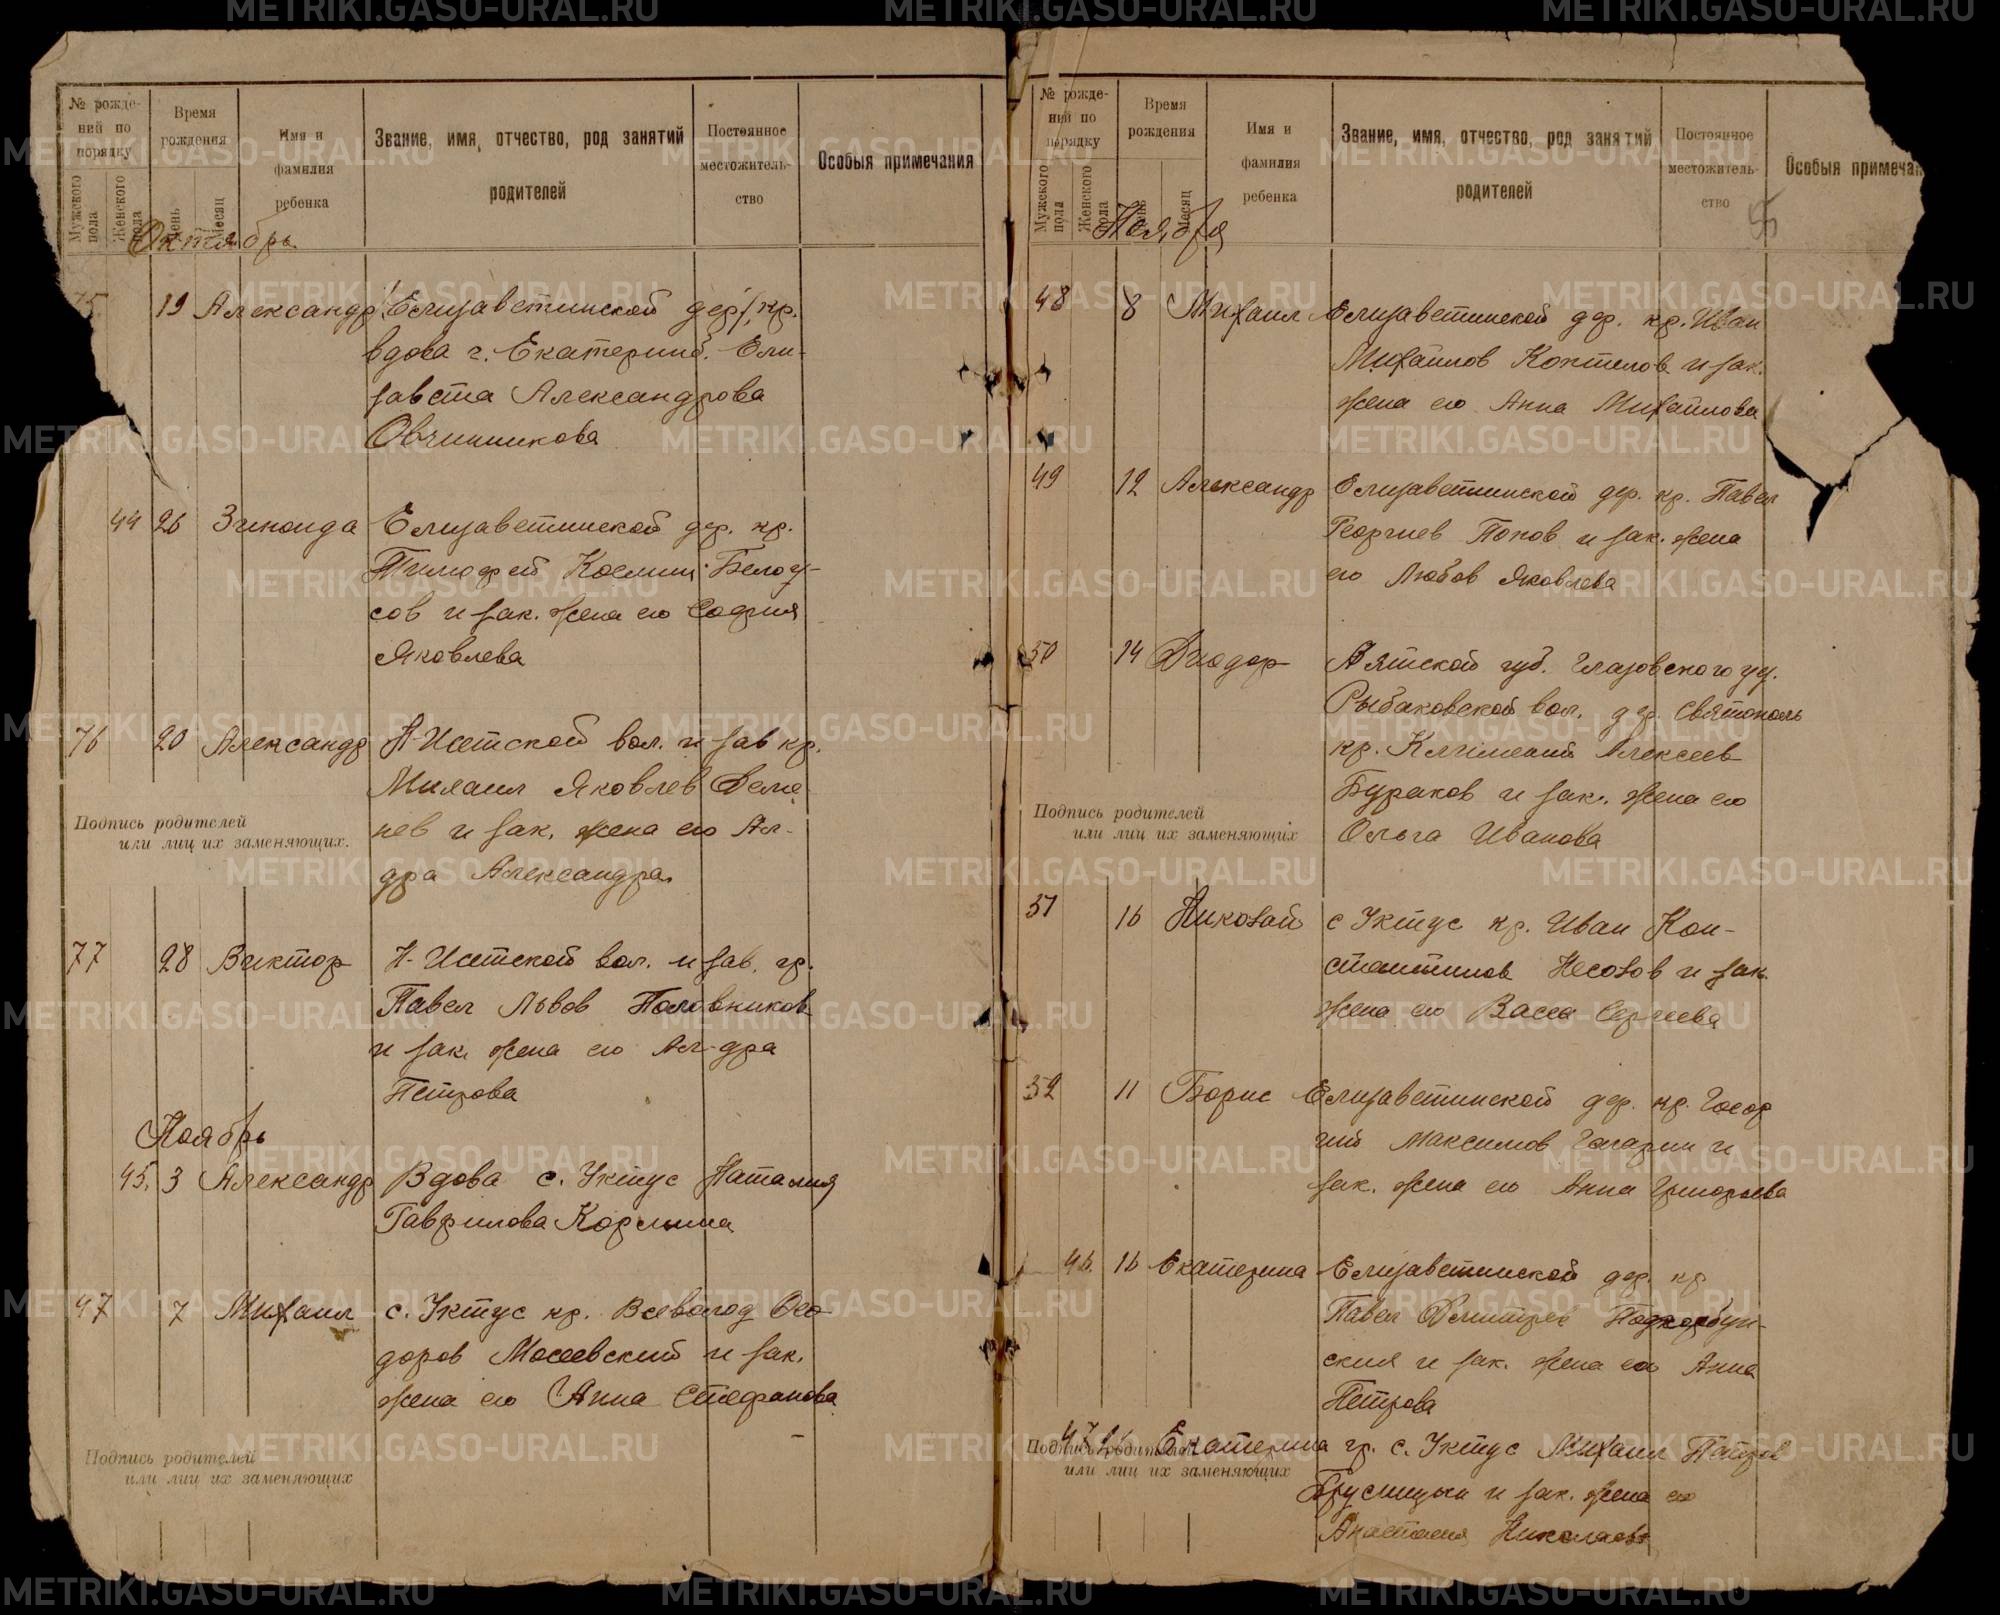 № рожде-
ний по
порядку
Время
рождения
Имя и
фамилия
ребенка
Звание, имя, отчество, род занятий
родителей
Постоянное
местожитель-
ство
Особыя примечания
Мужского
пола
Женского
пола
День
Месяц
Октябрь
75 19 Александр Елизаветинской дер., кр.
вдова г. Екатеринб. Ели-
завета Александрова
Овчинникова
44 26 Зинаида Елизаветинской дер. кр.
Тимофей Космин Белоу-
сов и зак. жена его София
Яковлева
76 20 Александр Н-Исетской вол. и зав кр.
Михаил Яковлев Деме
нев и зак. жена его Ал-
дра Александра
Подпись родителей
или лиц их заменяющих.
77 28 Виктор Н-Исетской вол. и зав. гр.
Павел Львов Половников
и зак. жена его Ал-дра
Петрова
Ноябрь
45. 3 Александр Вдова с. Уктус Наталия
Гаврилова Кормина
47 7 Михаил с. Уктус кр. Всеволод Фео-
доров Мосеевский и зак.
жена его Анна Стефанова
Подпись родителей
или лиц их заменяющих
№ рожде-
ний по
порядку
Время
рождения
Имя и
фамилия
ребенка
Звание, имя, отчество, род занятий
родителей
Постоянное
местожитель-
ство
Особыя примечан
Мужского
пола
Женского
пола
День
Месяц
Ноября
48 8 Михаил Елизаветинской дер. кр. Иван
Михаилов Коптелов и зак.
жена его Анна Михайлова
49 12 Александр Елизаветинской дер. кр. Павел
Георгиев Попов и зак. жена
его Любов Яковлева
50 14 Диодор Вятской губ. Глазовского уез.
Рыбаковской вол. дер. Святополь
кр. Климент Алексеев
Бураков и зак. жена его
Ольга Иванова
Подпись родителей
или лиц их заменяющих
51 16 Николай с Уктус кр. Иван Кон-
стантинов Несолов и зак
жена его Васса Сергеева
52 11 Борис Елизаветинской дер. кр. Геор
гий Максимов Гагарин и
зак. жена его Анна Григорьева
46. 16 Екатерина Елизаветинской дер. кр
Павел Дмитрев Подкорбун-
ский и зак. жена его Анна
Петрова
47 Екатерина гр. с. Уктус Михаил Петров
Подпись родителей
или лиц их заменяющих
Брусницын и зак. жена его
Анастасия Николаева
METRIKI.GASO-URAL.RU